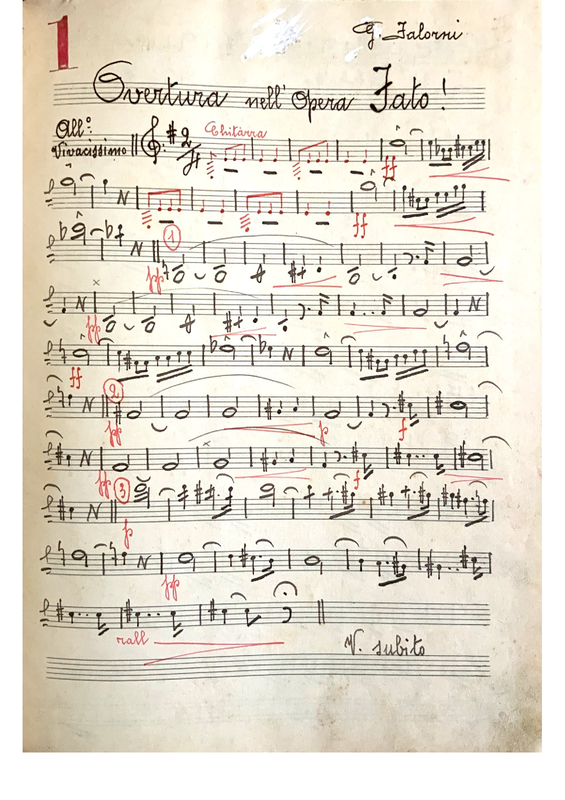 1
G. Falorni
Overtura nell'Opera Fato!
All.º
Vivacissimo
Chitarra
ff
ff
1
pp
pp
ff
2
pp
p
f
pp
f
3
p
pp
rall
V. subito